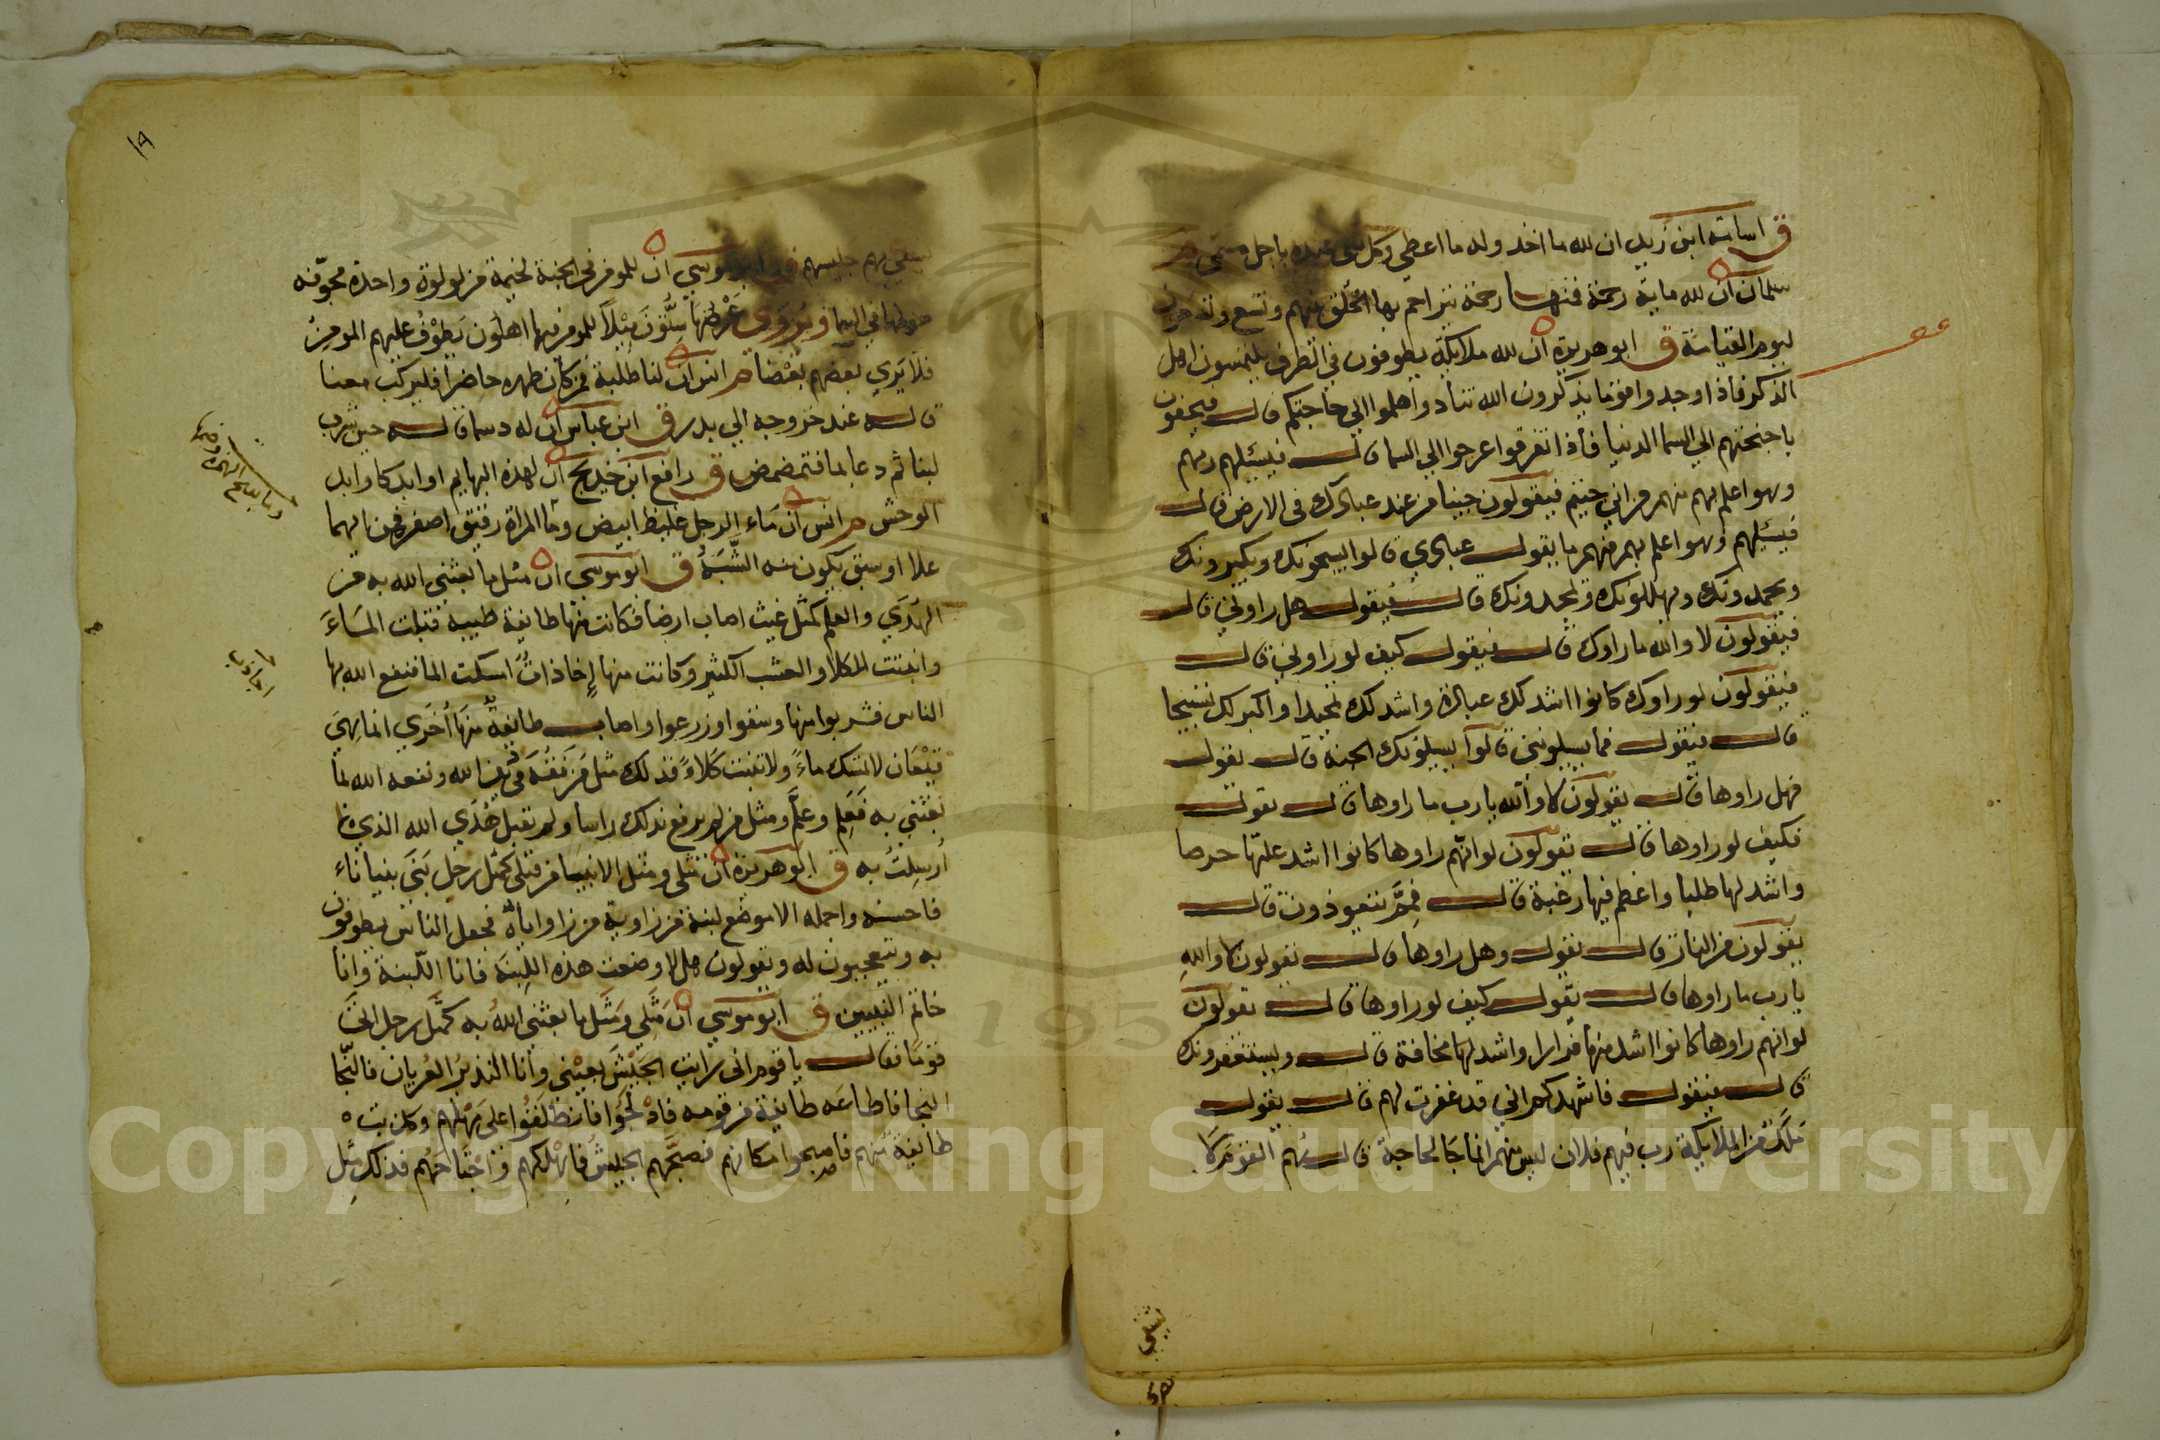 ق اسامة ابن زيد ان لله ما اخد وله ما اعطي وكل شي عنده باجل مسمى م
سلمان ان لله ماية رحمة فمنها رحمة يتراحم بها الخلق بينهم وتسع وتسعون
ليوم القيامة ق ابو هريرة ان لله ملايكة يطوفون في الطرق يلتمسون اهل
الذكر فاذا وجدوا قوما يذكرون الله تنادوا هلموا الي حاجتكم قال فيحفونهم
باجنحتهم الي السما الدنيا فأذا تفرقوا عرجوا الي السما قال فيسئلهم ربهم
وهو اعلم بهم منهم من اين جيتم فيقولون جينا من عند عبادك في الارض قال
فيسئلهم وهو اعلم بهم منهم ما يقول عبادي قالوا يسبحونك ويكبرونك
ويحمدونك ويهللونك ويمجدونك قال فيقول هل راوني قال
فيقولون لا والله ما راوك قال فيقول كيف لو راوني قال
فيقولون لو راوك كانوا اشد لك عبادة واشد لك تمجيدا واكثر لك تسبيحا
قال فيقول فما يسيلونني قالوا يسيلونك الجنة قال يقول
فهل راوها قال يقولون لا والله يا رب ما راوها قال يقول
فكيف لو راوها قال يقولون لو انهم راوها كانوا اشد عليها حرصا
واشد لها طلبا واعظم فيها رغبة قال فمم يتعوذون قال
يقولون من النار قال يقول وهل راوها قال يقولون لا والله
يا رب ما راوها قال يقول كيف لو راوها قال يقولون
لو انهم راوها كانوا اشد منها فرارا واشد لها مخافة قال ويستغفرونك
قال فيقول فاشهدكم اني قد غفرت لهم قال يقول
ملك من الملايكة رب فيهم فلان ليس منهم انما جا لحاجة قال هم القوم لا
يشقي
١٩
يشقي بهم جليسهم ق ابو موسي ان للمومن في الجنة لخيمة من لولوة واحدة مجوفة
طولها في السما ويروي عرضها ستون ميلا للمومن فيها اهلون يطوف عليهم المومن
فلا يري بعضهم بعضا م انس ان لنا طلبة فمن كان ظهره حاضرا فليركب معنا
قاله عند خروجه الي بدر ق ابن عباس ان له دسما قاله حين شرب
لبنا ثم دعا بما فتمضمض ق رافع ابن خديج ان لهذه البهايم اوابد كاوابد
الوحش م انس ان ماء الرجل غليظ ابيض وما المراة رقيق اصفر فمن ايهما
علا او سبق يكون منه الشبه ق ابو موسي ان مثل ما بعثني الله به من
الهدي والعلم كمثل غيث اصاب ارضا فكانت منها طايفة طيبة قبلت الماء
وانبتت الكلا والعشب الكثير وكانت منها إخاذات امسكت الما فنفع الله بها
الناس فشربوا منها وسقوا وزرعوا واصاب طايفة منها اخري انما هي
قيعان لا تمسك ماء ولا تنبت كلاء فذلك مثل من فقه في دين الله ونفعه الله بما
بعثني به فعلم وعلم ومثل من لم يرفع بذلك راسا ولم يقبل هدي الله الذي
أرسلت به ق ابو هريرة ان مثلي ومثل الانبيا من قبلي كمثل رجل بني بنيانا
فاحسنه واجمله الا موضع لبنة من زاوية من زواياه فجعل الناس يطوفون
به ويتعجبون له ويقولون هلا وضعت هذه اللبنة فانا اللبنة وانا
خاتم النبيين ق ابو موسي ان مثلي ومثل ما بعثني الله به كمثل رجل اتى
قوما فقال يا قوم اني رايت الجيش بعيني وانا النذير العريان فالنجا
النجا فاطاعه طايفة من قومه فادلجوا فانطلقوا على مهلهم وكذبت
طايفة منهم فاصبحوا مكانهم فصبحهم الجيش فاهلكهم واجتاحهم فذلك مثل
اجادب
Copyright © King Saud University
195